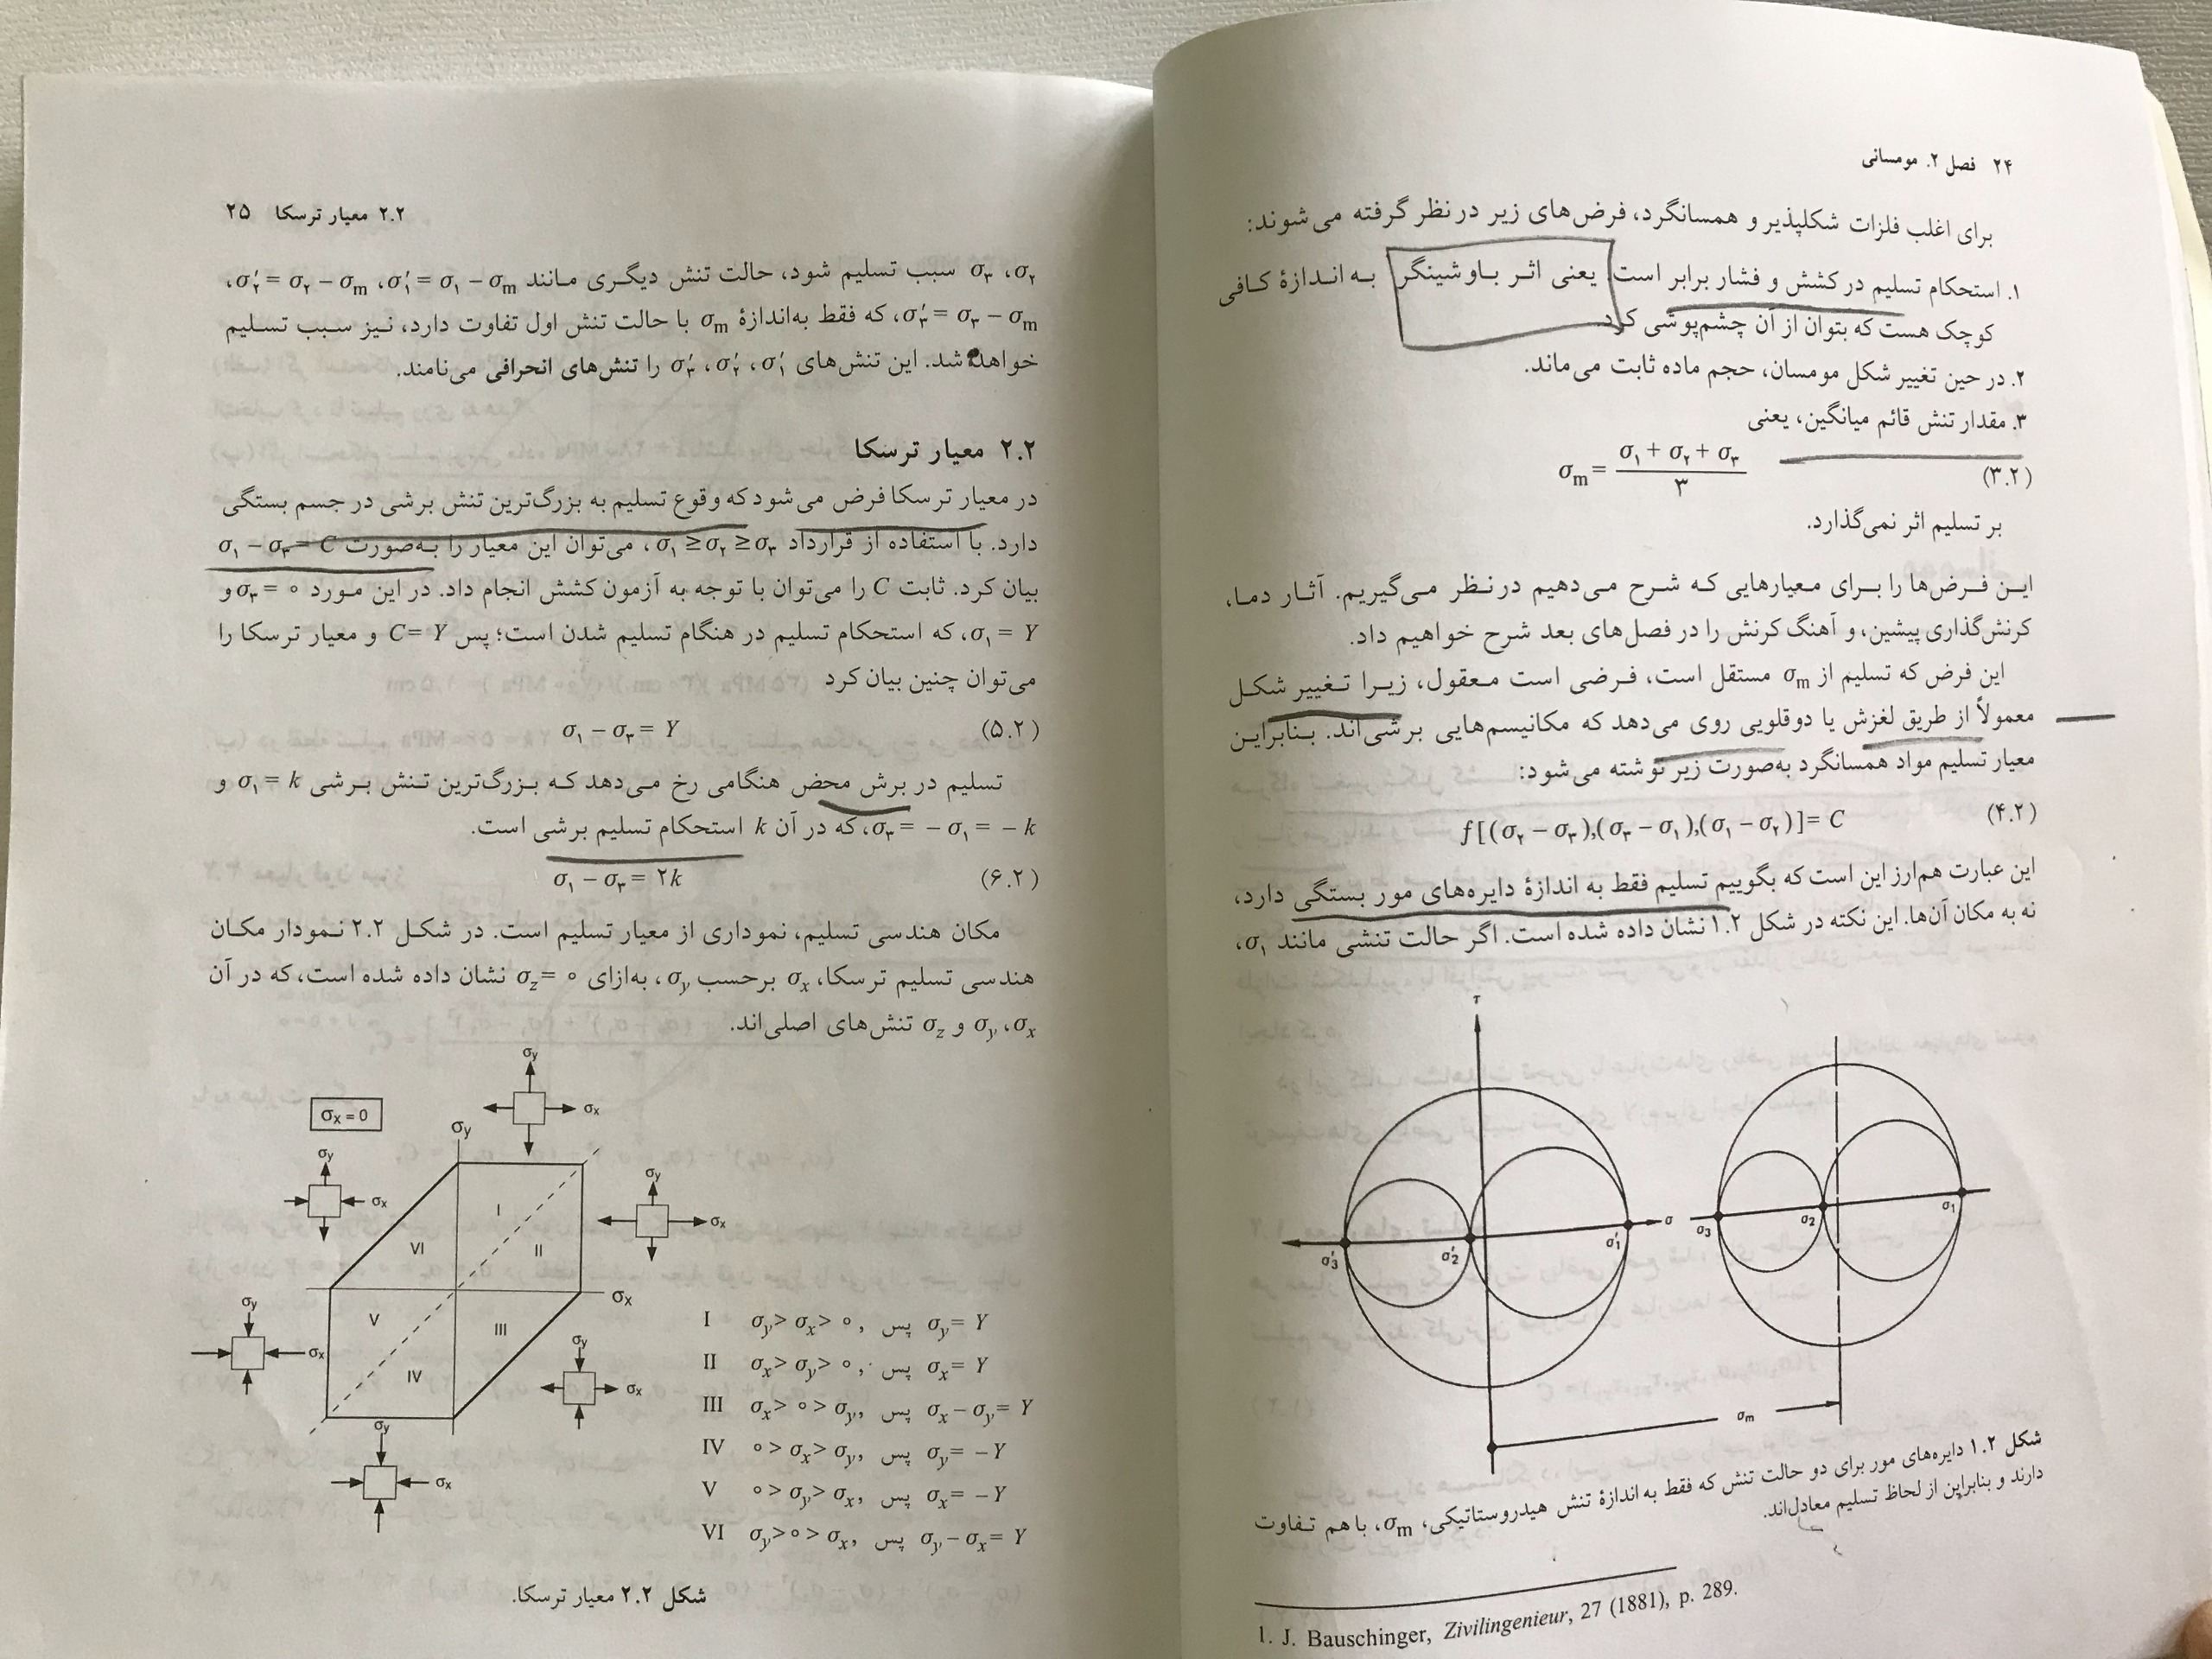 ۲۴ فصل ۲. مومسانی
برای اغلب فلزات شکلپذیر و همسانگرد، فرض‌های زیر در نظر گرفته می‌شوند:
۱. استحکام تسلیم در کشش و فشار برابر است یعنی اثر باوشینگر به اندازهٔ کافی
کوچک هست که بتوان از آن چشم‌پوشی کرد.
۲. در حین تغییر شکل مومسان، حجم ماده ثابت می‌ماند.
۳. مقدار تنش قائم میانگین، یعنی
σm = (σ۱ + σ۲ + σ۳) / ۳ (۳.۲)
بر تسلیم اثر نمی‌گذارد.
این فرض‌ها را برای معیارهایی که شرح می‌دهیم در نظر می‌گیریم. آثار دما،
کرنش‌گذاری پیشین، و آهنگ کرنش را در فصل‌های بعد شرح خواهیم داد.
این فرض که تسلیم از σm مستقل است، فرضی است معقول، زیرا تغییر شکل
معمولاً از طریق لغزش یا دوقلویی روی می‌دهد که مکانیسم‌هایی برشی‌اند. بنابراین
معیار تسلیم مواد همسانگرد به‌صورت زیر نوشته می‌شود:
f[(σ۲ − σ۳),(σ۳ − σ۱),(σ۱ − σ۲)] = C (۴.۲)
این عبارت هم‌ارز این است که بگوییم تسلیم فقط به اندازهٔ دایره‌های مور بستگی دارد،
نه به مکان آن‌ها. این نکته در شکل ۱.۲ نشان داده شده است. اگر حالت تنشی مانند σ۱،
τ
σ
σ′3 σ′2 σ′1
σ3 σ2 σ1
σm
شکل ۱.۲ دایره‌های مور برای دو حالت تنش که فقط به اندازهٔ تنش هیدروستاتیکی، σm، با هم تفاوت
دارند و بنابراین از لحاظ تسلیم معادل‌اند.
1. J. Bauschinger, Zivilingenieur, 27 (1881), p. 289.
۲.۲ معیار ترسکا ۲۵
σ۲، σ۳ سبب تسلیم شود، حالت تنش دیگری مانند σ′۱ = σ۱ − σm، σ′۲ = σ۲ − σm،
σ′۳ = σ۳ − σm، که فقط به‌اندازهٔ σm با حالت تنش اول تفاوت دارد، نیز سبب تسلیم
خواهد شد. این تنش‌های σ′۱، σ′۲، σ′۳ را تنش‌های انحرافی می‌نامند.
۲.۲ معیار ترسکا
در معیار ترسکا فرض می‌شود که وقوع تسلیم به بزرگ‌ترین تنش برشی در جسم بستگی
دارد. با استفاده از قرارداد σ۱ ≥ σ۲ ≥ σ۳، می‌توان این معیار را به‌صورت σ۱ − σ۳ = C
بیان کرد. ثابت C را می‌توان با توجه به آزمون کشش انجام داد. در این مورد σ۳ = ۰ و
σ۱ = Y، که استحکام تسلیم در هنگام تسلیم شدن است؛ پس C = Y و معیار ترسکا را
می‌توان چنین بیان کرد
σ۱ − σ۳ = Y (۵.۲)
تسلیم در برش محض هنگامی رخ می‌دهد که بزرگ‌ترین تنش برشی σ۱ = k و
σ۳ = − σ۱ = − k، که در آن k استحکام تسلیم برشی است.
σ۱ − σ۳ = ۲k (۶.۲)
مکان هندسی تسلیم، نموداری از معیار تسلیم است. در شکل ۲.۲ نمودار مکان
هندسی تسلیم ترسکا، σx برحسب σy، به‌ازای σz = ۰ نشان داده شده است، که در آن
σx، σy و σz تنش‌های اصلی‌اند.
σx = 0
σy
σx
σy
σx
σy
σx
σy
σx
σy
σx
σy
σx
σy
σx
I
II
III
IV
V
VI
I σy > σx > ۰, پس σy = Y
II σx > σy > ۰, پس σx = Y
III σx > ۰ > σy, پس σx − σy = Y
IV ۰ > σx > σy, پس σy = − Y
V ۰ > σy > σx, پس σx = − Y
VI σy > ۰ > σx, پس σy − σx = Y
شکل ۲.۲ معیار ترسکا.